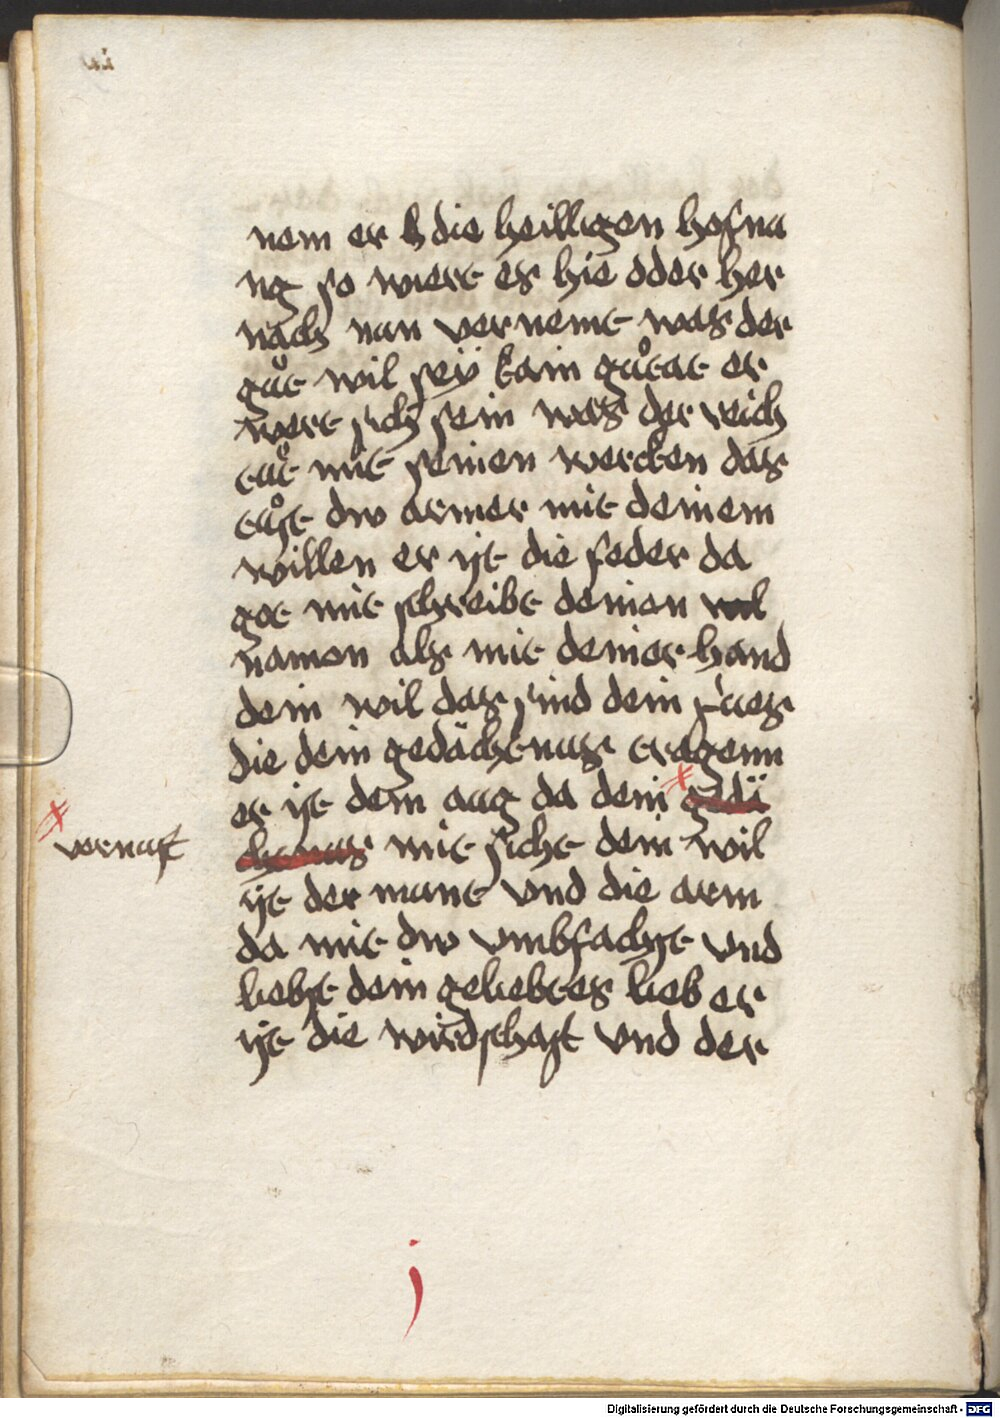 nem er h die heilligen hofnu
ng so wiert es hie oder her
nach nun vernemt was der
guͦt wil seÿ kain guͦtat er
wert sich sein was der reich
tuͦt mit seinen wercken das
tuͦst dw armer mit deinem
willen er ist die feder da
got mit schreibt deinen
namen als mit deiner hand
dein wil das sind dein fues
die dein gedächtnus tragenn
er ist dein aug da dein gedä
vernuft chtnus mit sicht dein wil
ist der munt vnd die arm
da mit dw vmbfachst vnd
liebst dein geliebtes lieb er
ist die wirdschaft vnd der
j
Digitalisierung gefördert durch die Deutsche Forschungsgemeinschaft - DFG